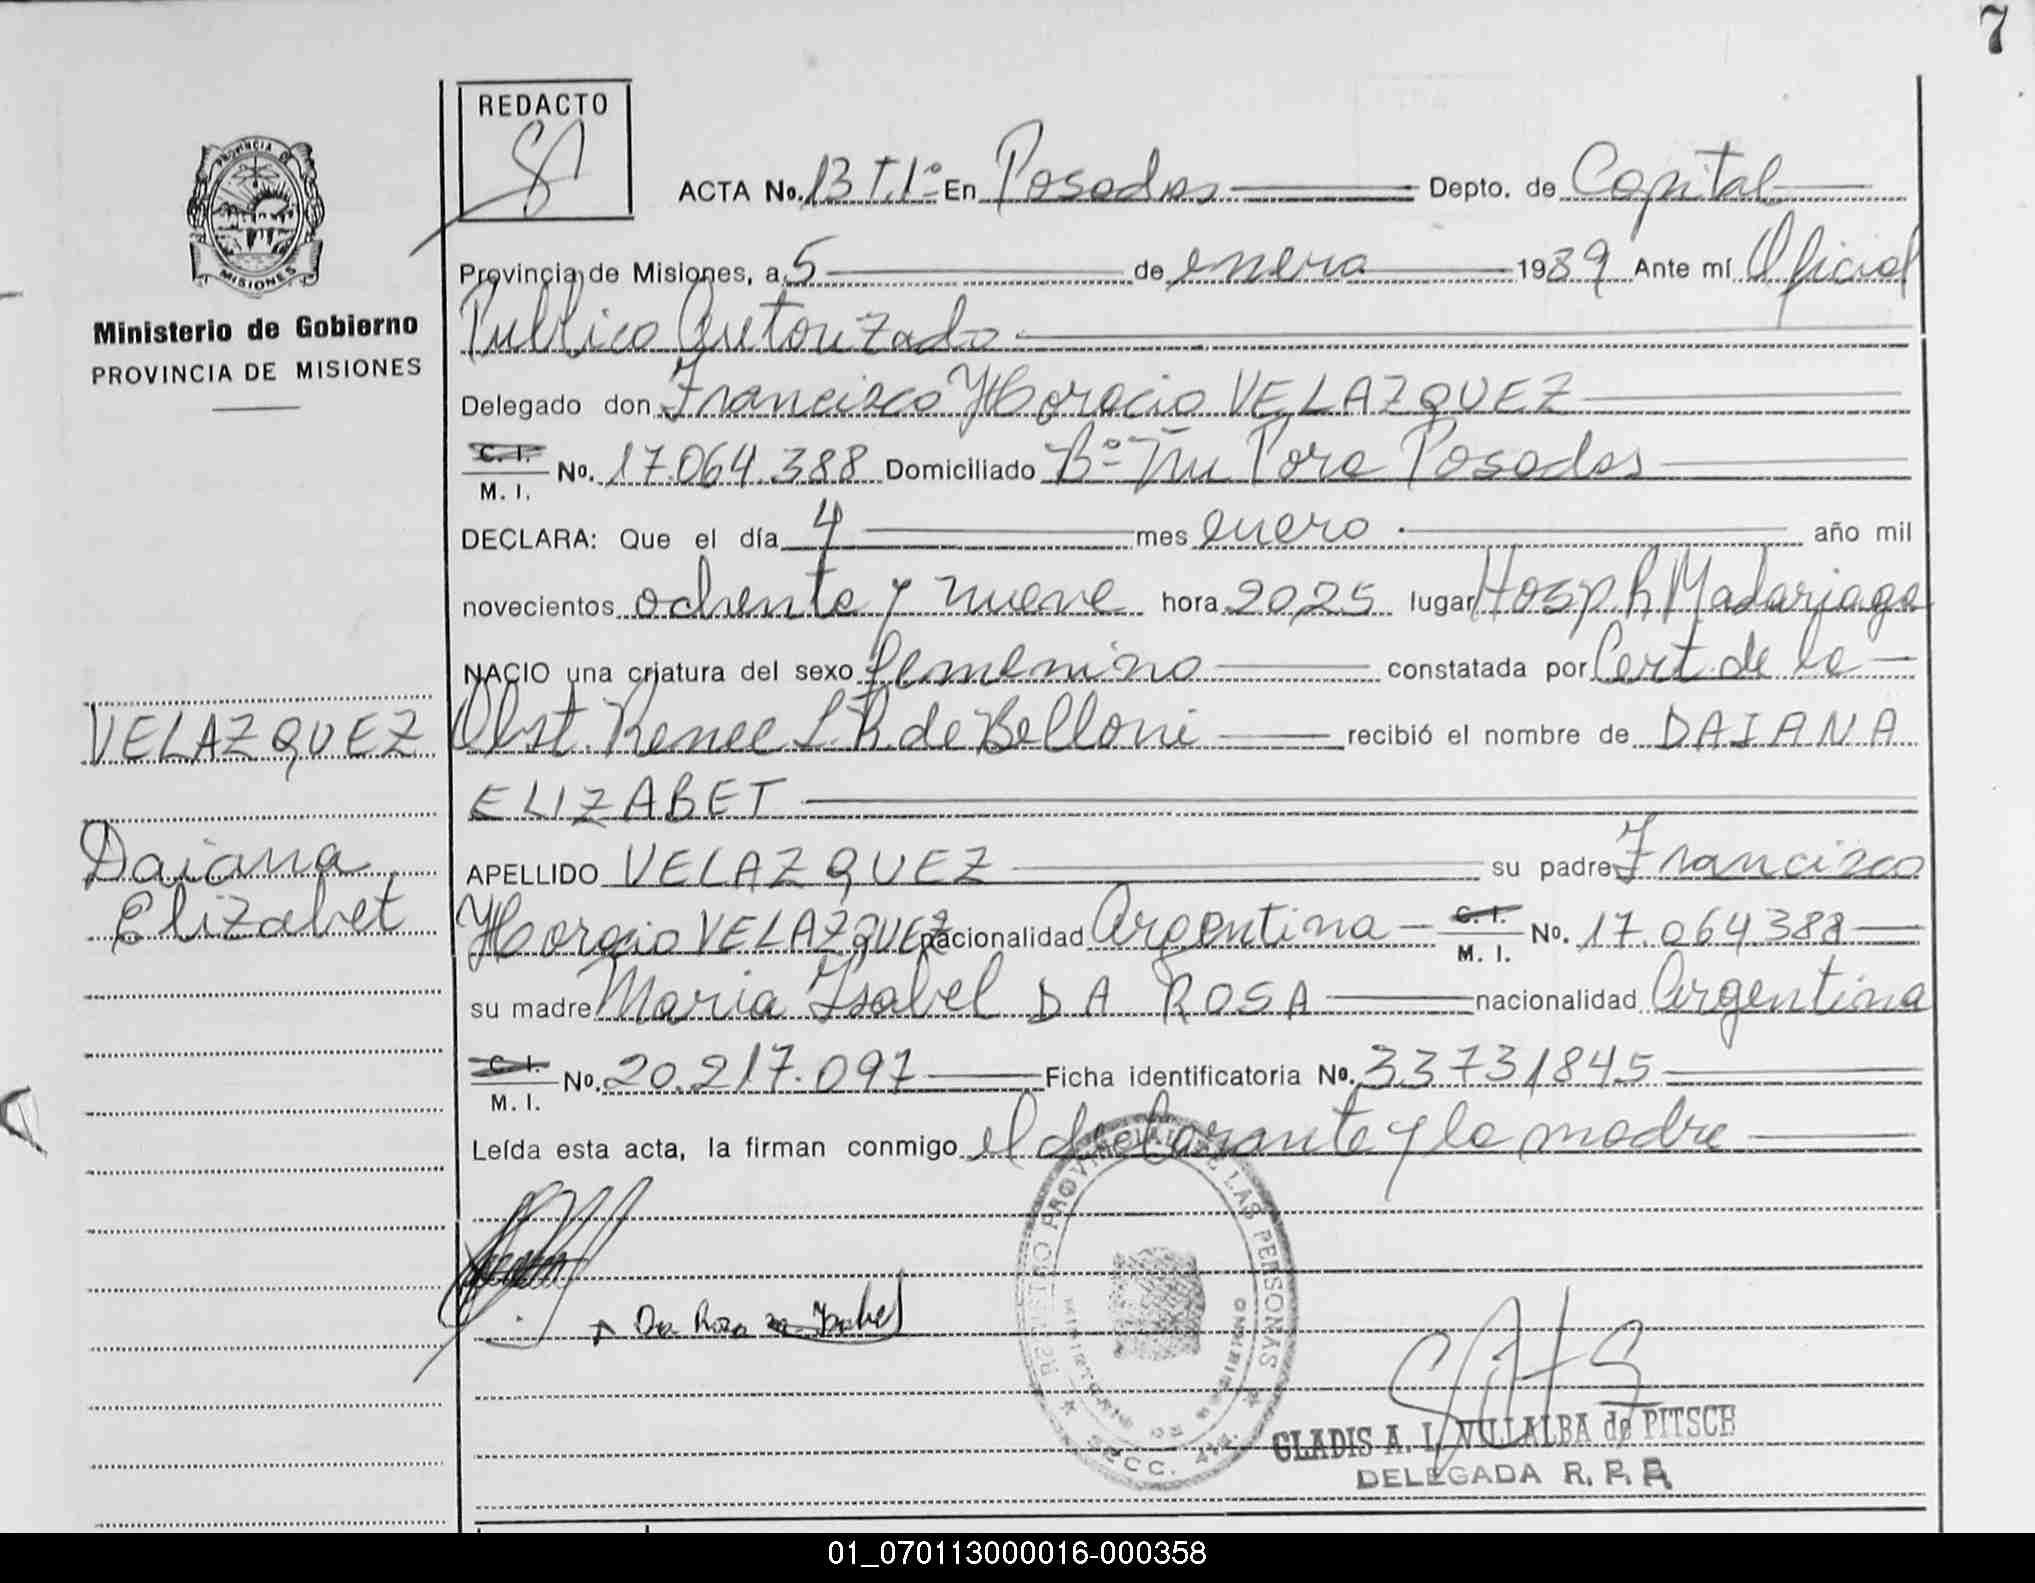 7
REDACTO
PROVINCIA DE
MISIONES
Ministerio de Gobierno
PROVINCIA DE MISIONES
ACTA No. 13 T.1º En Posadas Depto. de Capital
Provincia de Misiones, a 5 de enero 1989 Ante mí Oficial
Publico Autorizado
Delegado don Francisco Horacio VELAZQUEZ
C. I.
M. I. No. 17.064.388 Domiciliado Bº Posadas
DECLARA: Que el día 4 mes enero año mil
novecientos ochenta y nueve hora 2025 lugar Hosp. R Madariaga
NACIO una criatura del sexo femenino constatada por Cert. de la
Obst. Renee L.R. de Belloni recibió el nombre de DAIANA
ELIZABET
VELAZQUEZ
Daiana
Elizabet
APELLIDO VELAZQUEZ su padre Francisco
Horacio VELAZQUEZ nacionalidad Argentina C. I. M. I. No. 17.064.388
su madre Maria Isabel DA ROSA nacionalidad Argentina
C. I.
M. I. No. 20.217.097 Ficha identificatoria No. 33731845
Leída esta acta, la firman conmigo el declarante y la madre
Da Rosa Isabel
REGISTRO PROVINCIAL DE LAS PERSONAS
MINISTERIO DE GOBIERNO
SECC. 4ta.
GLADIS A. I. VILLALBA de PITSCH
DELEGADA R. P. P.
01_070113000016-000358